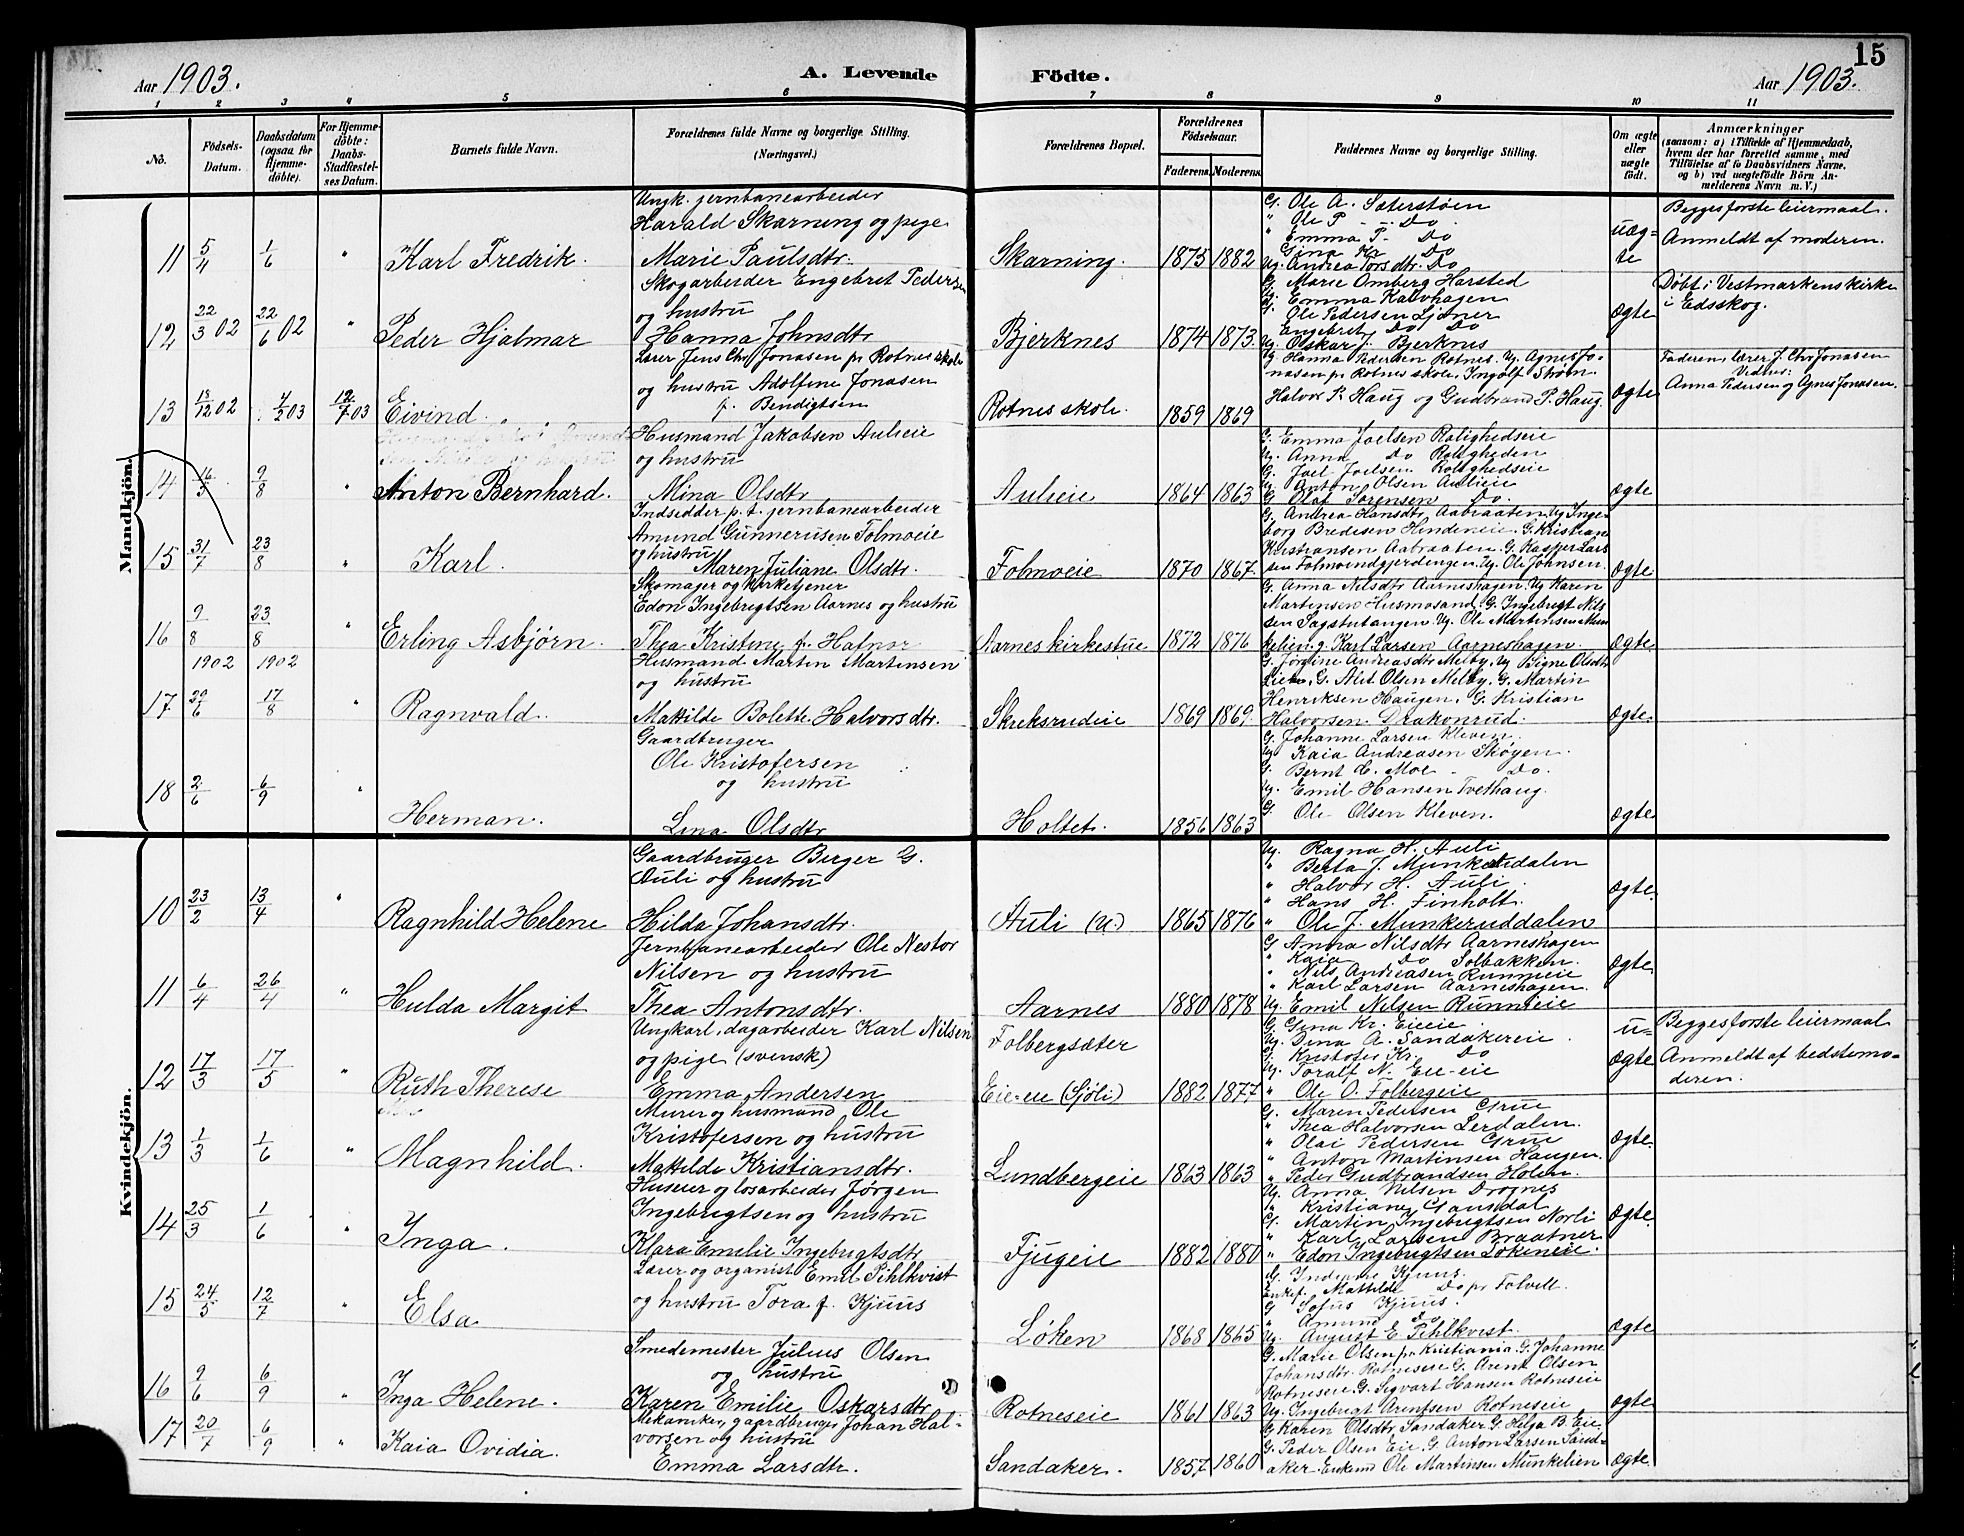 15
Aar 1903. A. Levende Födte. Aar 1903.
1 2 3 4 5 6 7 8 9 10 11
No.
Födsels-Datum.
Daabsdatum (ogsaa for Hjemme-döbte).
For Hjemme-döbte: Daabs-Stadfæstel-ses Datum.
Barnets fulde Navn.
Forældrenes fulde Navne og borgerlige Stilling.
(Næringsvei.)
Forældrenes Bopæl.
Forældrenes Födselsaar.
Faderens. Moderens.
Faddernes Navne og borgerlige Stilling.
Om ægte eller uægte födt.
Anmærkninger
(saasom: a) i Tilfælde af Hjemmedaab,
hvem der har forrettet samme, med
Tilföielse af to Daabsvidners Navne,
og b) ved uægtefödte Börn An-
melderens Navn m. V.)
Mandkjön.
11 5/4 1/6 " Karl Fredrik.
Ungk. jernbanearbeider
Harald Skarning og pige
Marie Paulsdtr.
Skarning. 1875 1882
G. Ole A. Sæterstøen
" Ole P - Do.
" Emma P - Do
Gina Kr. Do
Ug. Andrea Torsdtr. Do
uæg-
te
Begges første leiermaal.
Anmeldt af moderen.
12 22/3 02 22/6 02 " Peder Hjalmar
Skogarbeider Engebret Pedersen
og hustru
Hanna Johnsdtr
Bjerknes 1874 1873.
G. Marie Omberg Harsted
Ug. Emma Kalvhagen
G. Ole Pedersen Ljøner
Engebret Do Do
Ug. Oskar J. Bjerknes
ægte
Döbt i Vestmarkens kirke
i Edsskog.
13 18/12 02 4/2 03 12/7 03 Eivind.
Lærer Jens Chr Jonasen pr Rotnes skole
og hustru Adolfine Jonasen
f. Bendigtsen
Rotnes skole. 1859 1869
Ug Hanna Pedersen Rotnes. Ug. Agnes Jo-
nasen pr Rotnes skole. Ingolf Strøm.
Halvor P. Haug og Gudbrand P. Haug.
ægte
Faderen, lærer J. Chr Jonasen
Vidner:
Anna Pedersen og Agnes Jonasen.
14 16/5 9/8 " Anton Bernhard.
Husmand Jakobsen Aulieie
og hustru
Mina Olsdtr
Aulieie 1864 1863
G. Emma Joelsen Rolighedseie
Ug. Anna Do Roligheden
G. Joel Joelsen Rolighedseie
Ug. Anton Olsen Aulieie
G Olaf Sørensen Do.
ægte
15 31/7 23/8 " Karl.
Indsidder p.t. jernbanearbeider
Amund Gunneriusen Folmoeie
og hustru
Maren Juliane Olsdtr.
Folmoeie 1870 1867.
G. Andrea Hansdtr. Aabraaten. Ug Inge-
borg Bredesen Hindeneie. G. Kristian
Kristiansen Aabraaten. G. Kasper Lars
sen Folmoendgjerdingen. Ug. Ole Johnsen.
ægte
16 9/8 23/8 " Erling Asbjørn.
Skomager og kirketjener
Edon Ingebrigtsen Aarnes og hustru
Thea Kristine f. Hafnor
Aarnes kirkestue 1872 1876
G. Anna Nilsdtr Aarneshagen. Ug Karen
Martinsen Husmosand. G. Ingebrigt Nils
sen Sagstutangen. Ug. Ole Martinsen Mun
kelien. g. Karl Larsen Aarneshagen
ægte
1902 1902
17 29/6 17/8 " Ragnvald.
Husmand Martin Martinsen
og hustru
Mathilde Bolette Halvorsdtr.
Skreksrudeie 1869 1869.
G. Jørgine Andreasdtr Melby. Ug Signe Olsdtr
Lien. G. Alet Olsen Melby. G. Martin
Henriksen Haugen. G. Kristian
Halvorsen Drakonrud.
ægte.
18 2/6 6/9 " Herman.
Gaardbruger
Ole Kristofersen
og hustru
Lina Olsdtr
Holtet. 1856 1863
G. Johanne Larsen Kleven.
Ug Kaia Andreasen Skøyen.
G. Bernt C. Moe - Do.
Ug. Emil Hansen Tvethaug.
G. Ole Olsen Kleven.
ægte
Kvindekjön.
10 23/2 13/4 " Ragnhild Helene
Gaardbruger Berger G.
Auli og hustru
Hilda Johansdtr.
Auli (u.) 1865 1876
Ug. Ragna H. Auli
" Berta J. Munkerudalen
" Halvor H. Auli.
" Hans H. Finholt.
" Ole J. Munkeruddalen
ægte.
11 6/4 26/4 " Hulda Margit
Jernbanearbeider Ole Nestor
Nilsen og hustru
Thea Antonsdtr.
Aarnes 1880 1878
G Anna Nilsdtr Aarneshagen
" Kaia Do Solbakken.
" Nils Andreasen Runnieie
" Karl Larsen Aarneshagen.
Ug. Emil Nilsen Runnieie
ægte.
12 17/3 17/5 " Ruth Therese
Ungkarl, dagarbeider Karl Nilsen
og pige (svensk)
Emma Andersen
Folbergsæter
Eieeie (Sjöli) 1882 1877
G. Gina Kr. Eieie
Ug. Dina A. Sandakereie.
G. Kristofer Kr. Do
Ug. Toralf N. Eie-eie
" Ole O. Folbergeie
u-
ægte
Begges første leiermaal
Anmeldt af bedstemo-
deren.
13 1/3 1/6 " Magnhild.
Murer og husmand Ole
Kristofersen og hustru
Mathilde Kristiansdtr.
Lundbergeie 1863 1863
G. Maren Pedersen Grue
" Thea Halvorsen Lerdalen.
" Olai Pedersen Grue
" Anton Martinsen Haugen.
" Peder Gudbrandsen Holen.
ægte.
14 25/3 1/6 " Inga.
Huseier og løsarbeider Jørgen
Ingebrigtsen og hustru
Klara Emilie Ingebrigtsdtr.
Fjugeie 1882 1880
Ug. Anna Nilsen Drognes
" Kristiane Gansdal
G. Martin Ingebrigtsen Norli
" Karl Larsen Braatner
" Edon Ingebrigtsen Løkeneie.
ægte.
15 24/5 12/7 " Elsa
Lærer og organist Emil Pihlkvist
og hustru Tora f. Kjuus
Løken 1868 1865
G. Indiane Kjuus.
Enkef. Mathilde Do pr Folvell.
G Sofus Kjuus.
" Amund Do
Ug. August E. Pihlkvist.
ægte
16 9/6 6/9 " Inga Helene.
Smedemester Julius Olsen
og hustru
Karen Emilie Oskarsdtr
Rotneseie 1861 1863
G. Marie Olsen pr Kristiania. G. Johanne
Johansdtr. Rotneseie G. Arent Olsen
Rotneseie. G. Sigvart Hansen Rotneseie
Ug. Ingebrigt Arentsen Rotneseie
ægte
17 20/7 6/9 " Kaia Ovidia.
Mekaniker, gaardbruger Johan Hal-
vorsen og hustru
Emma Larsdtr.
Sandaker. 1857 1860
G Karen Olsdtr. Sandaker G. Helga B. Eie
G. Peder Olsen Eie. G Anton Larsen Sand-
aker. Enkemd Ole Martinsen Munkelien
ægte.